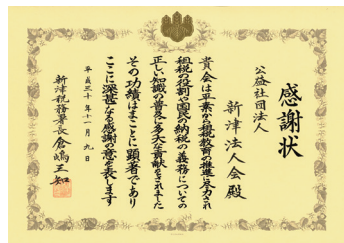 感謝状
公益社団法人
新津法人会殿
貴会は平素から租税教育の推進に尽力され
租税の役割や国民の納税の義務についての
正しい知識の普及に多大な貢献をされました
その功績はまことに顕著であり
ここに深甚なる感謝の意を表します
平成三十年十一月九日
新津税務署長 倉嶋正知